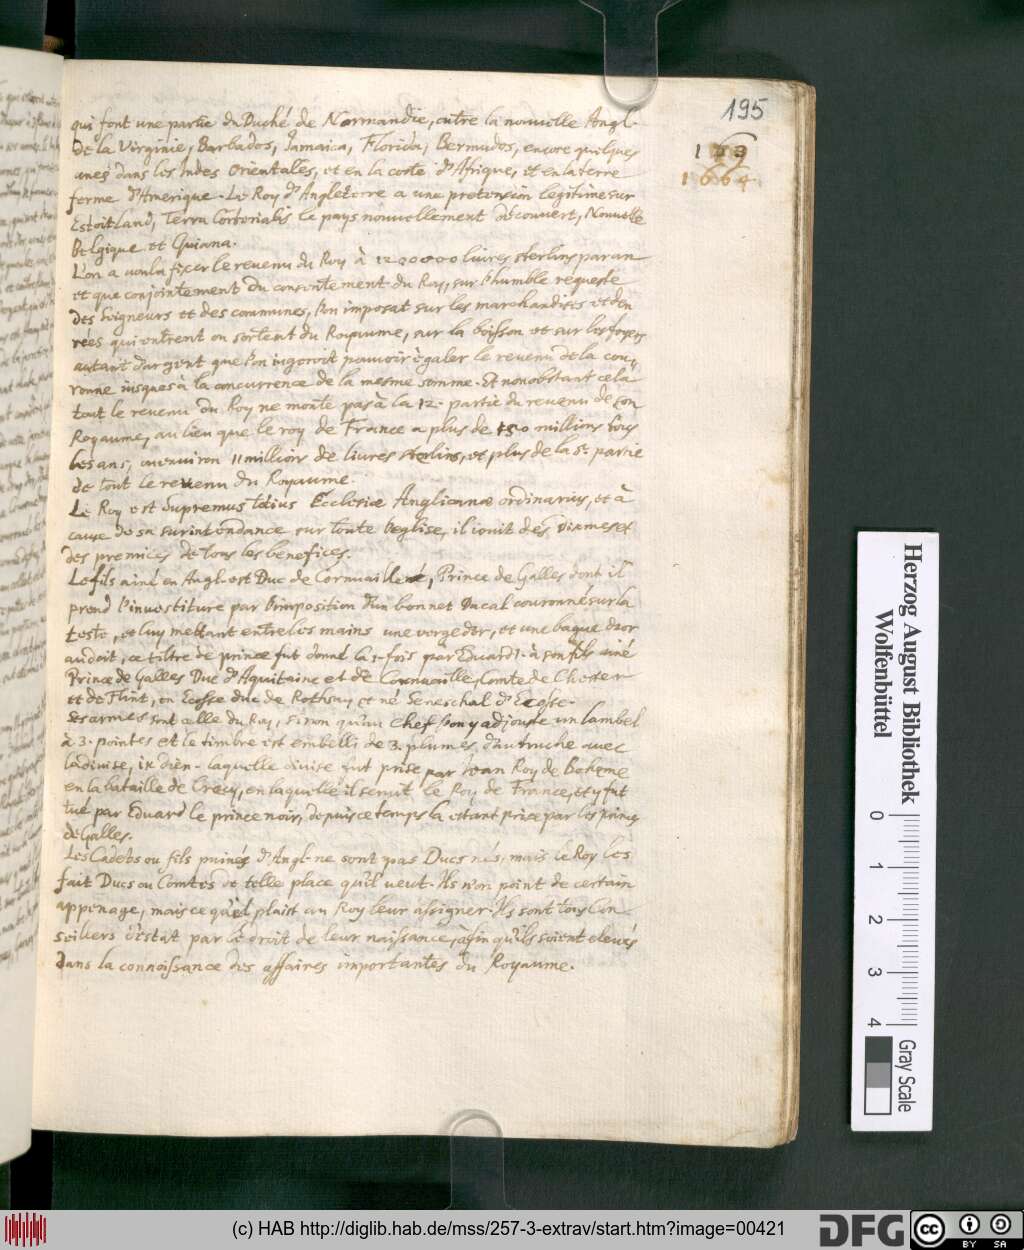 195
1 5 3
1664
qui font une partie du Duché de Normandie, outre la nouvelle Angl.
De la Virginie, Barbados, Jamaica, Florida, Bermudos, encore quelques
unes dans les Indes Orientales, et en la coste d'Afrique, et en la terre
ferme d'Amerique. Le Roy d'Angleterre a une pretension legitime sur
Estoitland, Terra Corterialis le pays nouvellement découvert, Nouvelle
Belgique et Guiana.
L'on a voulu fixer le revenu du Roy à 1200000 livres sterlins par an
et que conjointement du consentement du Roy, sur l'humble requeste
des Seigneurs et des communes, l'on imposat sur les marchandises et den
rées qui entrent ou sortent du Royaume, sur la boisson et sur les foyers
autant d'argent que l'on jugeroit pouvoir égaler le revenu de la cou
ronne jusques à la concurrence de la mesme somme. Et nonobstant cela
tout le revenu du Roy ne monte pas à la 12. partie du revenu de son
Royaume, au lieu que le roy de France a plus de 150 millions tous
les ans, ou environ 11 millions de livres sterlins, et plus de la 5e partie
de tout le revenu du Royaume.
Le Roy est Supremus totius Ecclesiæ Anglicanæ ordinarius, et à
cause de sa surintendance sur toute l'eglise, il jouit des Dixmes et
des premices de tous les benefices.
Le fils ainé en Angl. est Duc de Cornuaille né, Prince de Galles dont il
prend l'investiture par l'imposition d'un bonnet Ducal couronné sur la
teste, et luy mettant entre les mains une verge d'or, et une bague d'or
au doit, ce tiltre de prince fut donné la 1. fois par Eduard 1. à son fils ainé
Prince de Galles Duc d'Aquitaine et de Cornuaille, Comte de Chester
et de Flint, en Ecosse duc de Rothsay et né Seneschal d'Ecosse.
Ses armes sont celle du Roy, sinon qu'au chef l'on y adjouste un lambel
à 3. pointes et le timbre est embelli de 3. plumes d'autruche avec
la divise, ix dien. laquelle divise fut prise par Jean Roy de Boheme
en la bataille de Crecy, en laquelle il servit le Roy de France, et y fut
tué par Eduard le prince noir, depuis ce temps la estant prise par les princes
de Galles.
Les Cadets ou fils puinés d'Angl. ne sont pas Ducs nés, mais le Roy les
fait Ducs ou Comtes de telle place qu'il veut. Ils n'on point de certain
appenage, mais ce qu'il plaist au Roy leur assigner. Ils sont tous Con
seillers d'estat par le droit de leur naissance, afin qu'ils soient elevés
dans la connoissance des affaires importantes du Royaume.
Herzog August Bibliothek
Wolfenbüttel
0 1 2 3 4
Gray Scale
(c) HAB http://diglib.hab.de/mss/257-3-extrav/start.htm?image=00421
DFG
cc BY SA